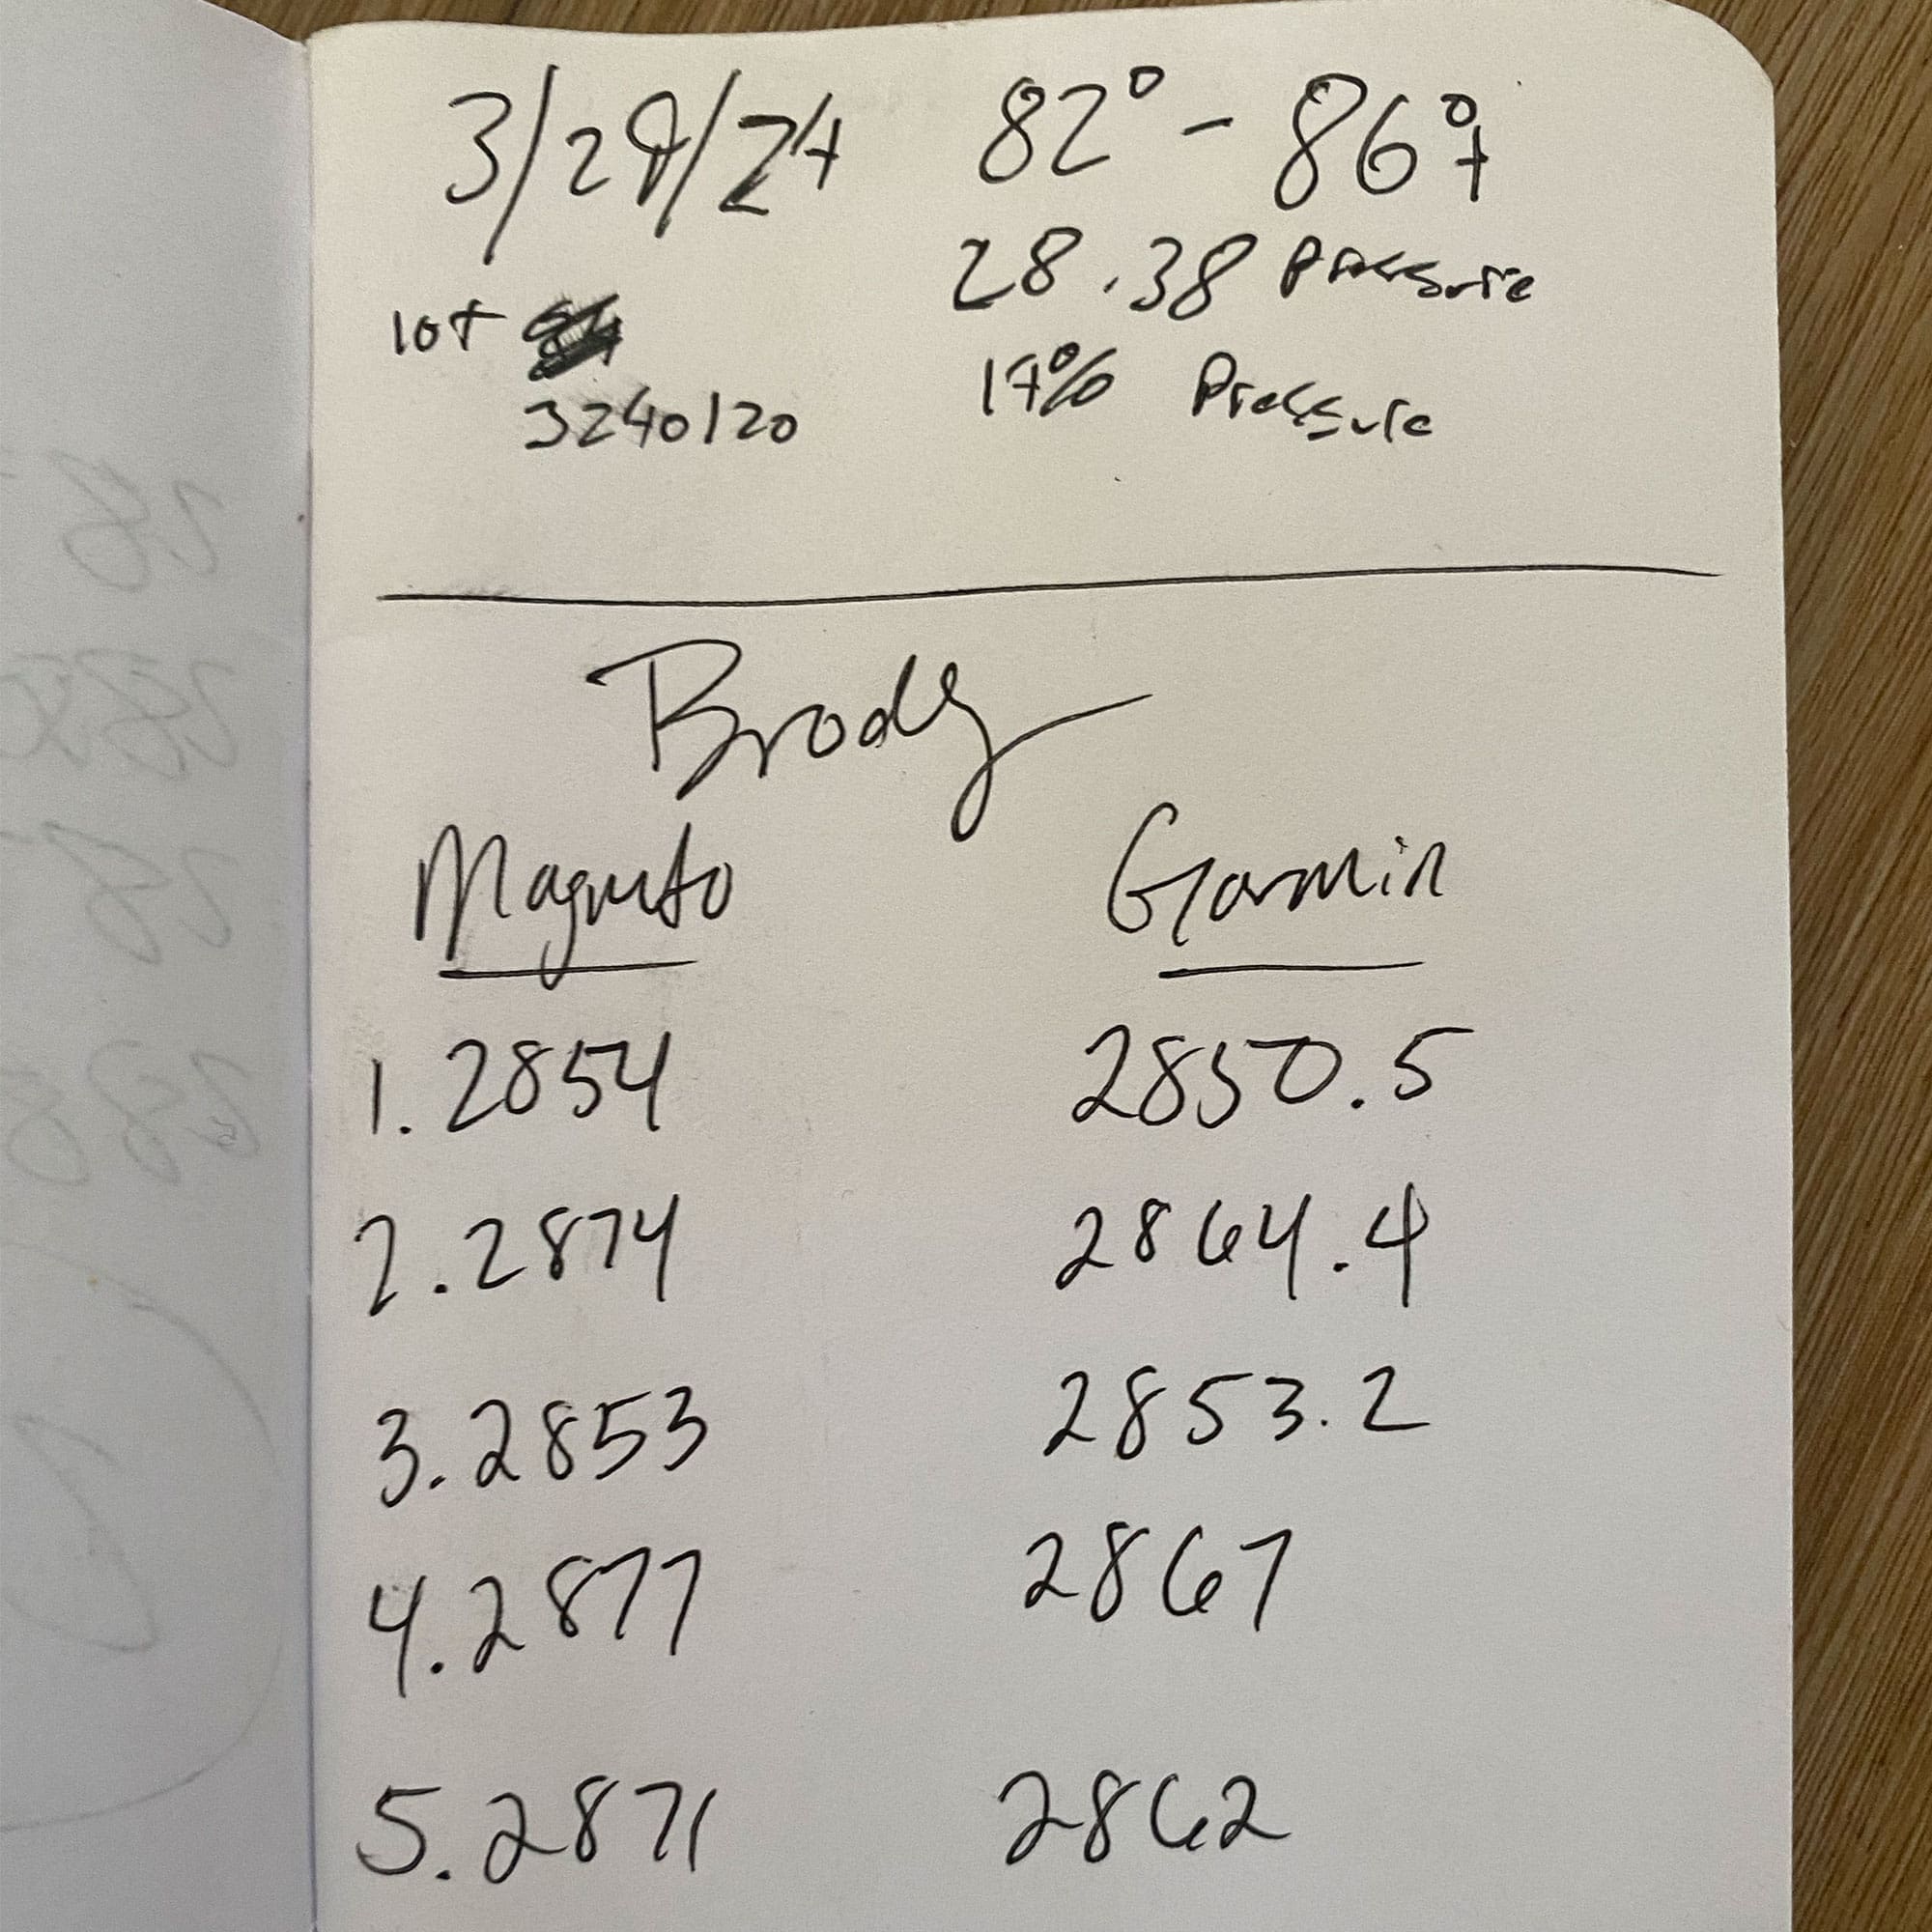 3/29/24 82° - 86°f
28.38 Pressure
lot
3240120 17% Pressure
Brody
Magneto Garmin
1. 2854 2850.5
2. 2874 2864.4
3. 2853 2853.2
4. 2877 2867
5. 2871 2862